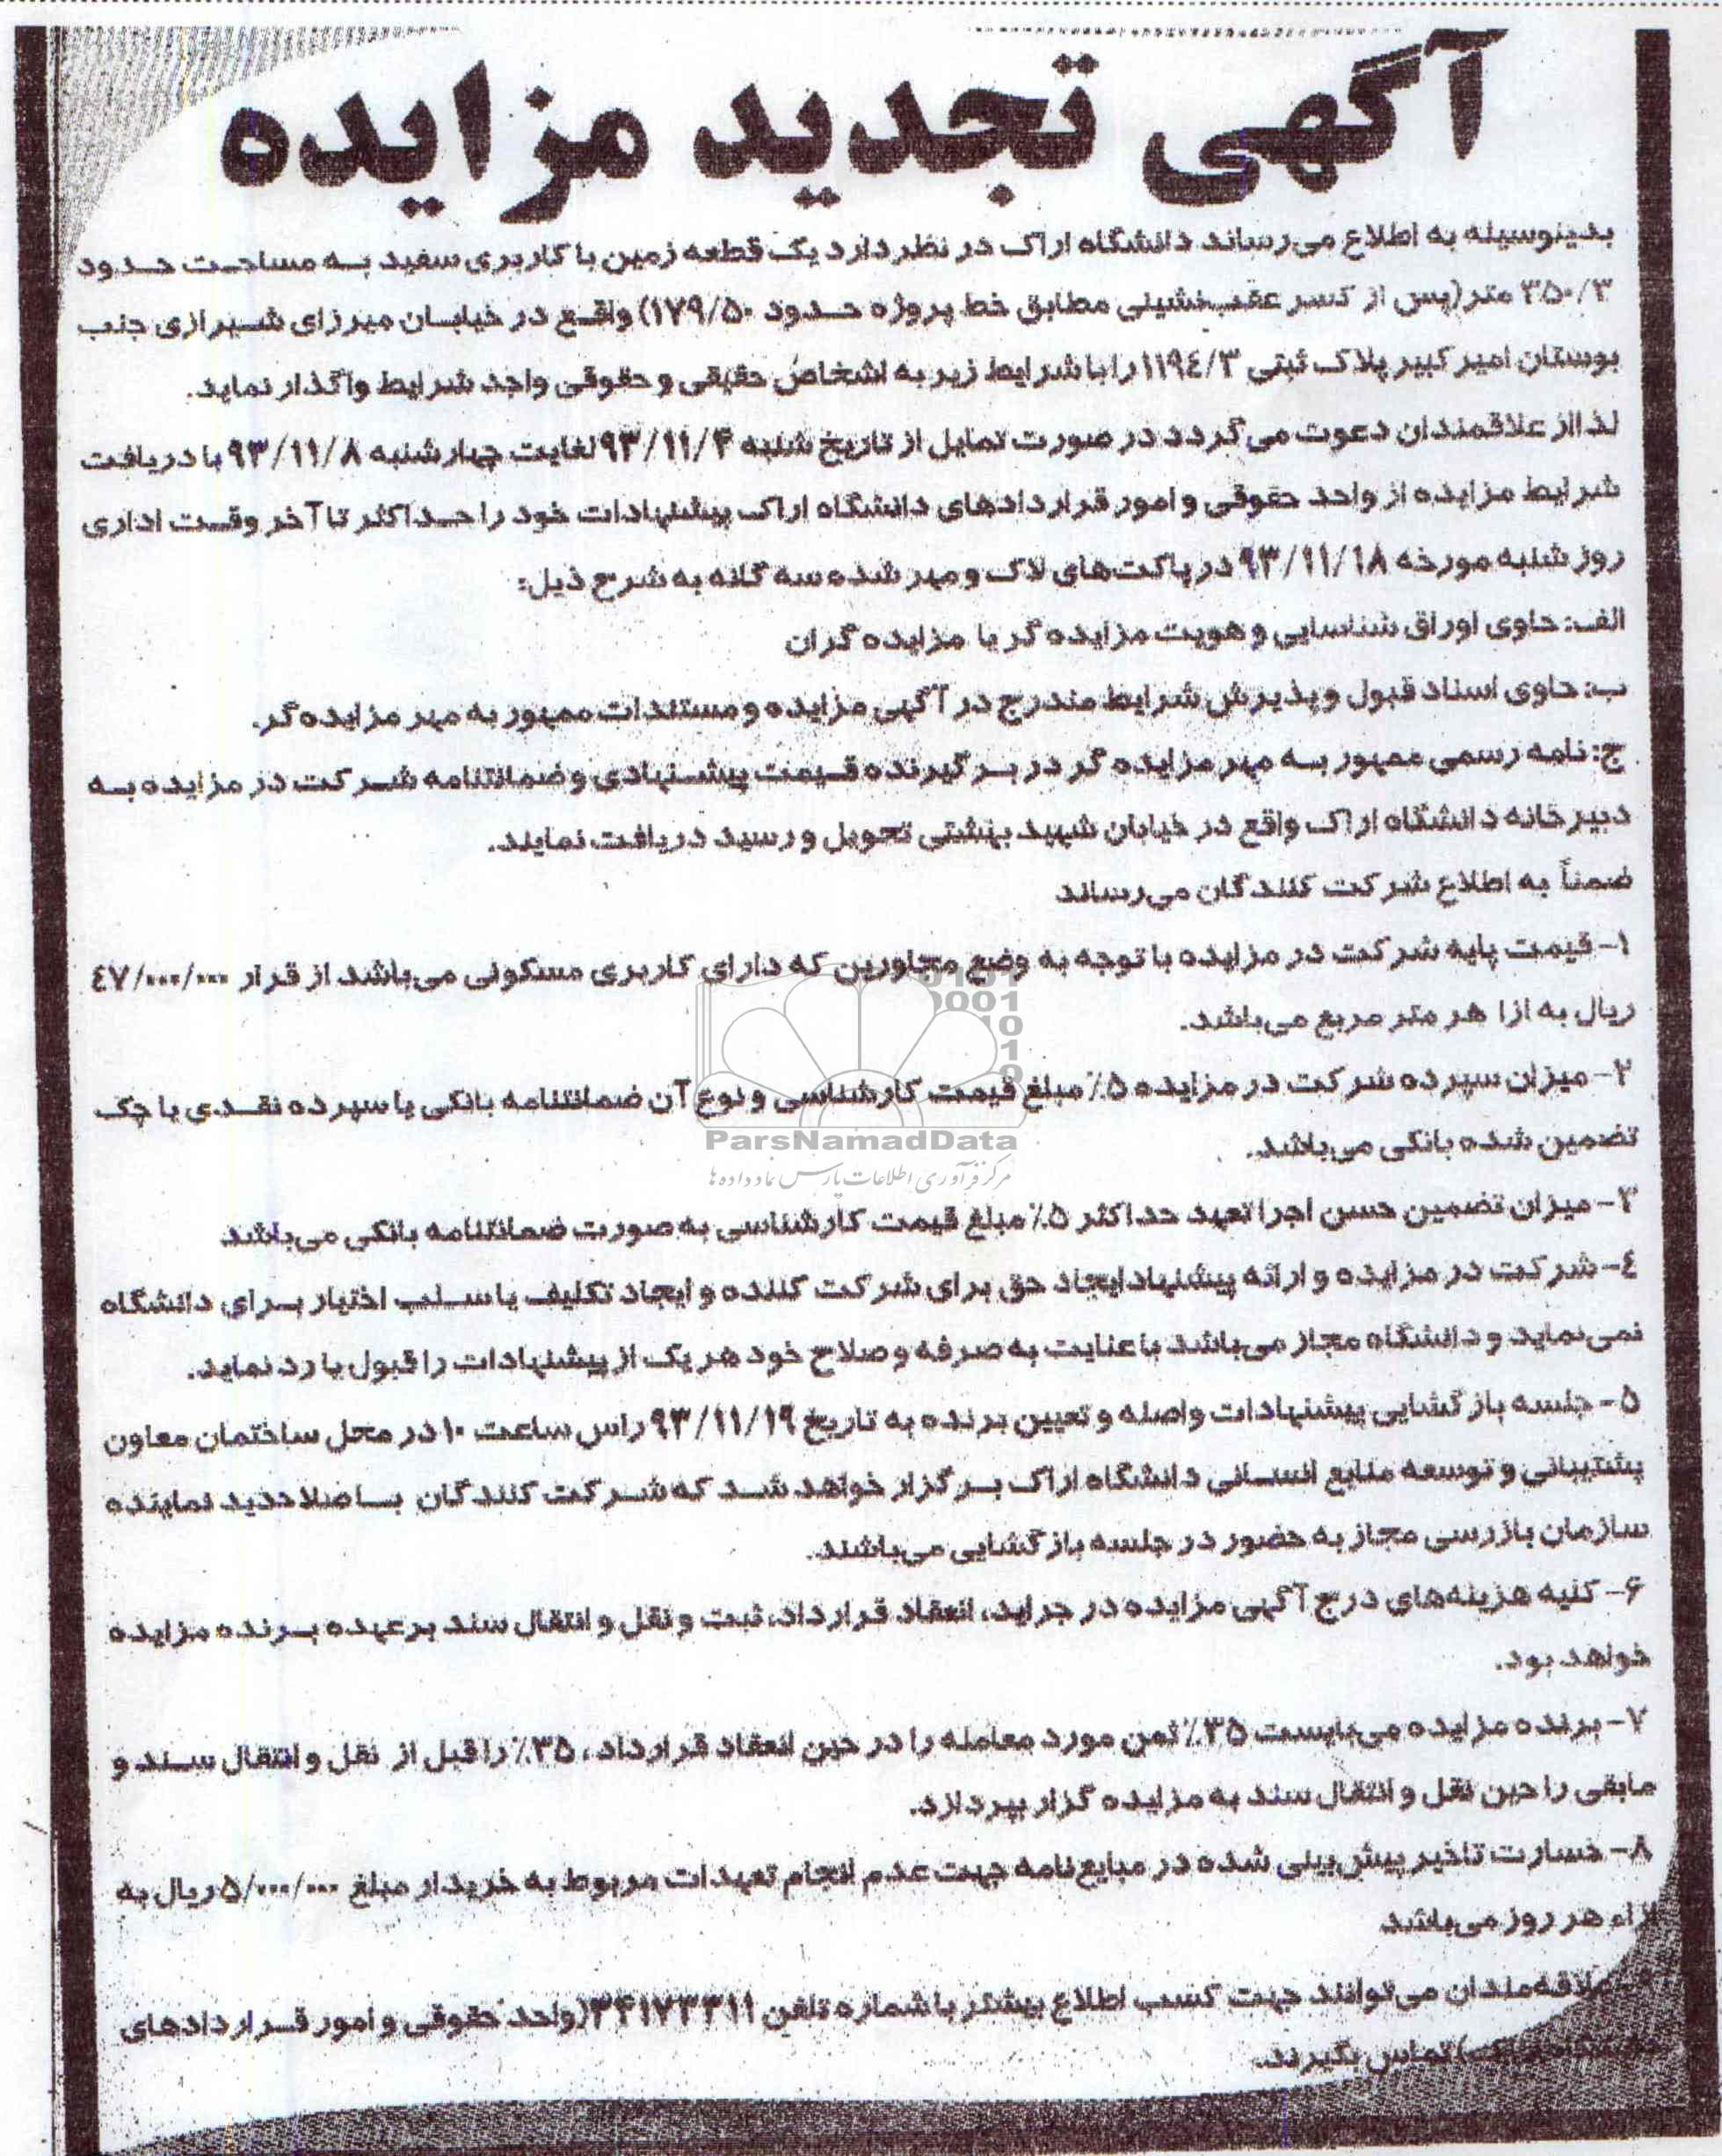 آگهی تجدید مزایده
بدینوسیله به اطلاع می‌رساند دانشگاه اراک در نظر دارد یک قطعه زمین با کاربری سفید به مساحت حدود
۳۵۰/۳ متر (پس از کسر عقب‌نشینی مطابق خط پروژه حدود ۱۷۹/۵۰) واقع در خیابان میرزای شیرازی جنب
بوستان امیرکبیر پلاک ثبتی ۱۱۹۴/۳ را با شرایط زیر به اشخاص حقیقی و حقوقی واجد شرایط واگذار نماید.
لذا از علاقمندان دعوت می‌گردد در صورت تمایل از تاریخ شنبه ۹۳/۱۱/۴ لغایت چهارشنبه ۹۳/۱۱/۸ با دریافت
شرایط مزایده از واحد حقوقی و امور قراردادهای دانشگاه اراک پیشنهادات خود را حداکثر تا آخر وقت اداری
روز شنبه مورخه ۹۳/۱۱/۱۸ در پاکت‌های لاک و مهر شده سه گانه به شرح ذیل:
الف: حاوی اوراق شناسایی و هویت مزایده گر یا مزایده گران
ب: حاوی اسناد قبول و پذیرش شرایط مندرج در آگهی مزایده و مستندات ممهور به مهر مزایده‌گر.
ج: نامه رسمی ممهور به مهر مزایده گر در بر گیرنده قیمت پیشنهادی و ضمانتنامه شرکت در مزایده به
دبیرخانه دانشگاه اراک واقع در خیابان شهید بهشتی تحویل و رسید دریافت نمایند.
ضمناً به اطلاع شرکت کنندگان می‌رساند
۱- قیمت پایه شرکت در مزایده با توجه به وضع مجاورین که دارای کاربری مسکونی می‌باشد از قرار ۴۷/۰۰۰/۰۰۰
ریال به ازا هر متر مربع می‌باشد.
۲- میزان سپرده شرکت در مزایده ۵٪ مبلغ قیمت کارشناسی و نوع آن ضمانتنامه بانکی یا سپرده نقدی یا چک
تضمین شده بانکی می‌باشد.
ParsNamadData
مرکز فرآوری اطلاعات پارس نماد داده ها
۳- میزان تضمین حسن اجرا تعهد حداکثر ۵٪ مبلغ قیمت کارشناسی به صورت ضمانتنامه بانکی می‌باشد
۴- شرکت در مزایده و ارائه پیشنهاد ایجاد حق برای شرکت کننده و ایجاد تکلیف یا سلب اختیار برای دانشگاه
نمی‌نماید و دانشگاه مجاز می‌باشد با عنایت به صرفه و صلاح خود هر یک از پیشنهادات را قبول یا رد نماید.
۵- جلسه بازگشایی پیشنهادات واصله و تعیین برنده به تاریخ ۹۳/۱۱/۱۹ راس ساعت ۱۰ در محل ساختمان معاون
پشتیبانی و توسعه منابع انسانی دانشگاه اراک برگزار خواهد شد که شرکت کنندگان با صلاحدید نماینده
سازمان بازرسی مجاز به حضور در جلسه بازگشایی می‌باشند.
۶- کلیه هزینه‌های درج آگهی مزایده در جراید، انعقاد قرارداد، ثبت و نقل و انتقال سند بر عهده برنده مزایده
خواهد بود.
۷- برنده مزایده می‌بایست ۳۵٪ ثمن مورد معامله را در حین انعقاد قرارداد، ۳۵٪ را قبل از نقل و انتقال سند و
مابقی را حین نقل و انتقال سند به مزایده گزار بپردازد.
۸- خسارت تاخیر پیش‌بینی شده در مبایع‌نامه جهت عدم انجام تعهدات مربوط به خریدار مبلغ ۵/۰۰۰/۰۰۰ ریال به
ازاء هر روز می‌باشد
علاقه‌مندان می‌توانند جهت کسب اطلاع بیشتر با شماره تلفن (واحد حقوقی و امور قراردادهای
تماس بگیرند.